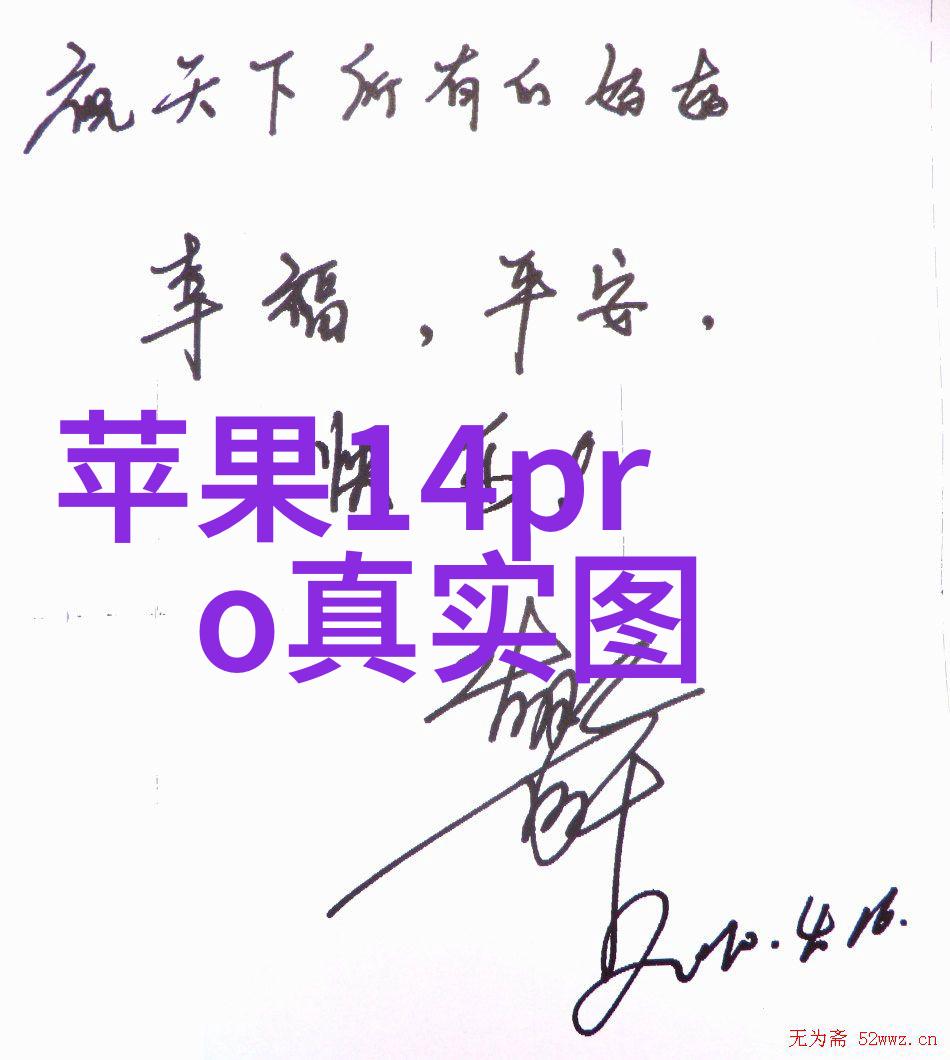 祝天下所有的妈妈
幸福，平安，
快乐！
苹果14pr
o真实图
2010.4.16.
无为斋 52wwz.cn